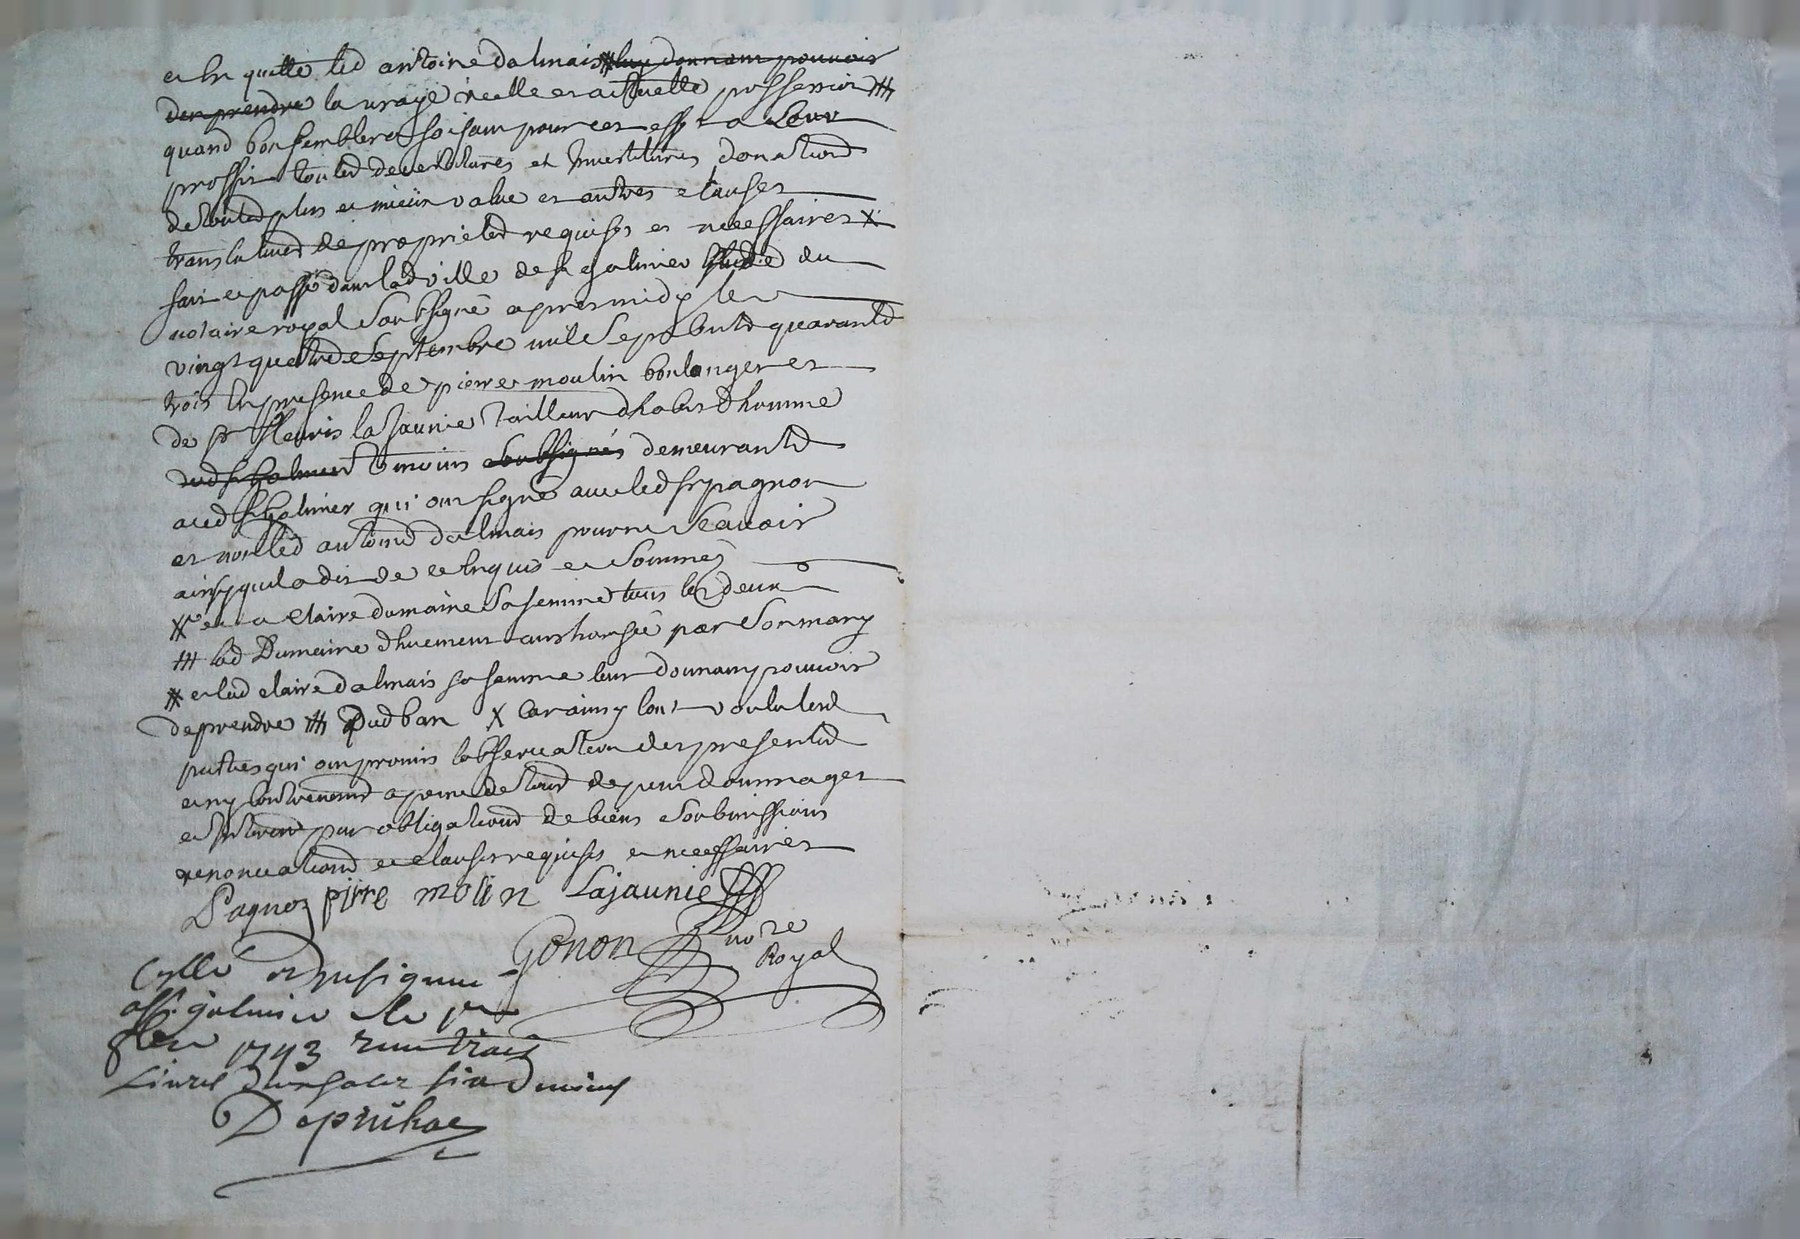 et en quitte led antoine dalmais # luy donnant pouvoir
den prendre la vraye reelle et actuelle possession ##
quand bon semblera faisant pour cet effet a leur
proffit toutes devestitures et Investitures donations
de toutes plus et mieux value et autres clauses
translatives de proprieted requises et necessaires X
fait et passé dans lad ville de st galmier Estude du
notaire royal Soubsigné apres midy le
vingt quatre Septembre mil Sept Cents quarante
trois En presence de pierre moulin boulanger et
de sr fleuris lajaunie tailleur dhabits dhomme
dud st galmier temoins soubsignés demeurants
aud st Galmier qui ont signé avec led sr pagnon
et non led antoine dalmais pour ne Scavoir
ainsy quil a dit de ce Enquis et Sommés
X et a Claire dumaine Sa femme tous les deux
## lad Dumaine dhuement authorisée par Son mary
# et lad claire dalmais sa femme leur donnant pouvoir
de prendre ## dud bail X Car ainsy lont voulu lesd
parties qui ont promis lobservation des presentes
et ny Contrevenir a peine de tous depens dommages
et Interets par obligations de biens Soubmissions
renonciations et clauses requises et necessaires
Pagnon pirre molin Lajaunie
Gonon nore
Royal
Collé et Insigné
a st galmier le 1er
8bre 1743 receu trois
Livres douze sols six deniers